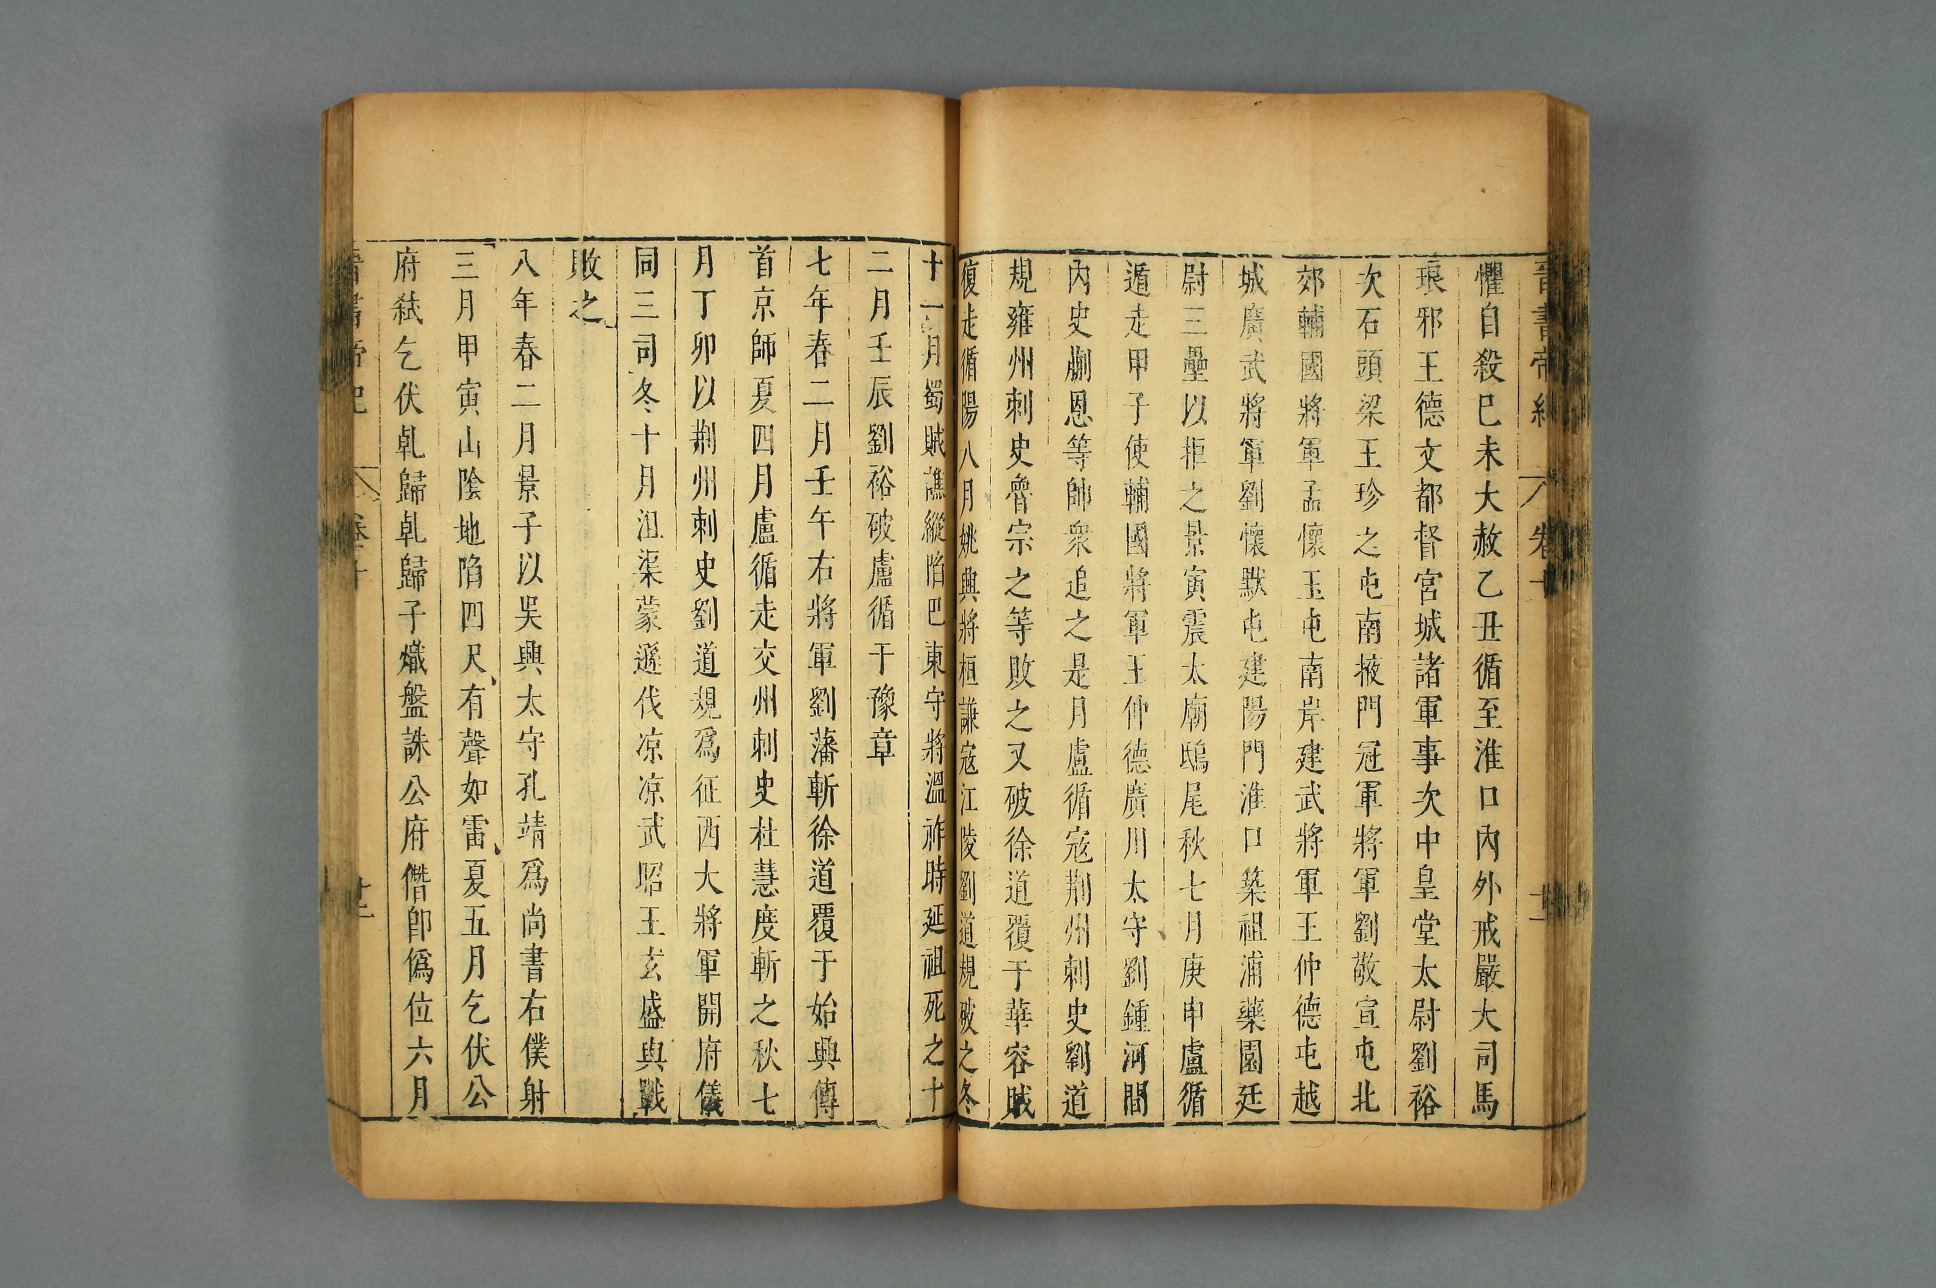 晉書帝紀 卷十 十一
懼自殺巳未大赦乙丑循至淮口內外戒嚴大司馬
琅邪王德文都督宮城諸軍事次中皇堂太尉劉裕
次石頭梁王珍之屯南掖門冠軍將軍劉敬宣屯北
郊輔國將軍孟懷玉屯南岸建武將軍王仲德屯越
城廣武將軍劉懷默屯建陽門淮口築祖浦藥園廷
尉三壘以拒之景寅震太廟鴟尾秋七月庚申盧循
遁走甲子使輔國將軍王仲德廣川太守劉鍾河間
內史蒯恩等帥衆追之是月盧循寇荆州刺史劉道
規雍州刺史魯宗之等敗之又破徐道覆于華容賊
復走循陽八月姚興將桓謙寇江陵劉道規破之冬
十一月蜀賊譙縱陷巴東守將溫祚時延祖死之十
二月壬辰劉裕破盧循于豫章
七年春二月壬午右將軍劉藩斬徐道覆于始興傳
首京師夏四月盧循走交州刺史杜慧度斬之秋七
月丁卯以荆州刺史劉道規爲征西大將軍開府儀
同三司冬十月沮渠蒙遜伐凉凉武昭王玄盛與戰
敗之
八年春二月景子以吳興太守孔靖爲尚書右僕射
三月甲寅山陰地陷四尺有聲如雷夏五月乞伏公
府弑乞伏乹歸乹歸子熾盤誅公府僭卽僞位六月
晉書帝紀 卷十